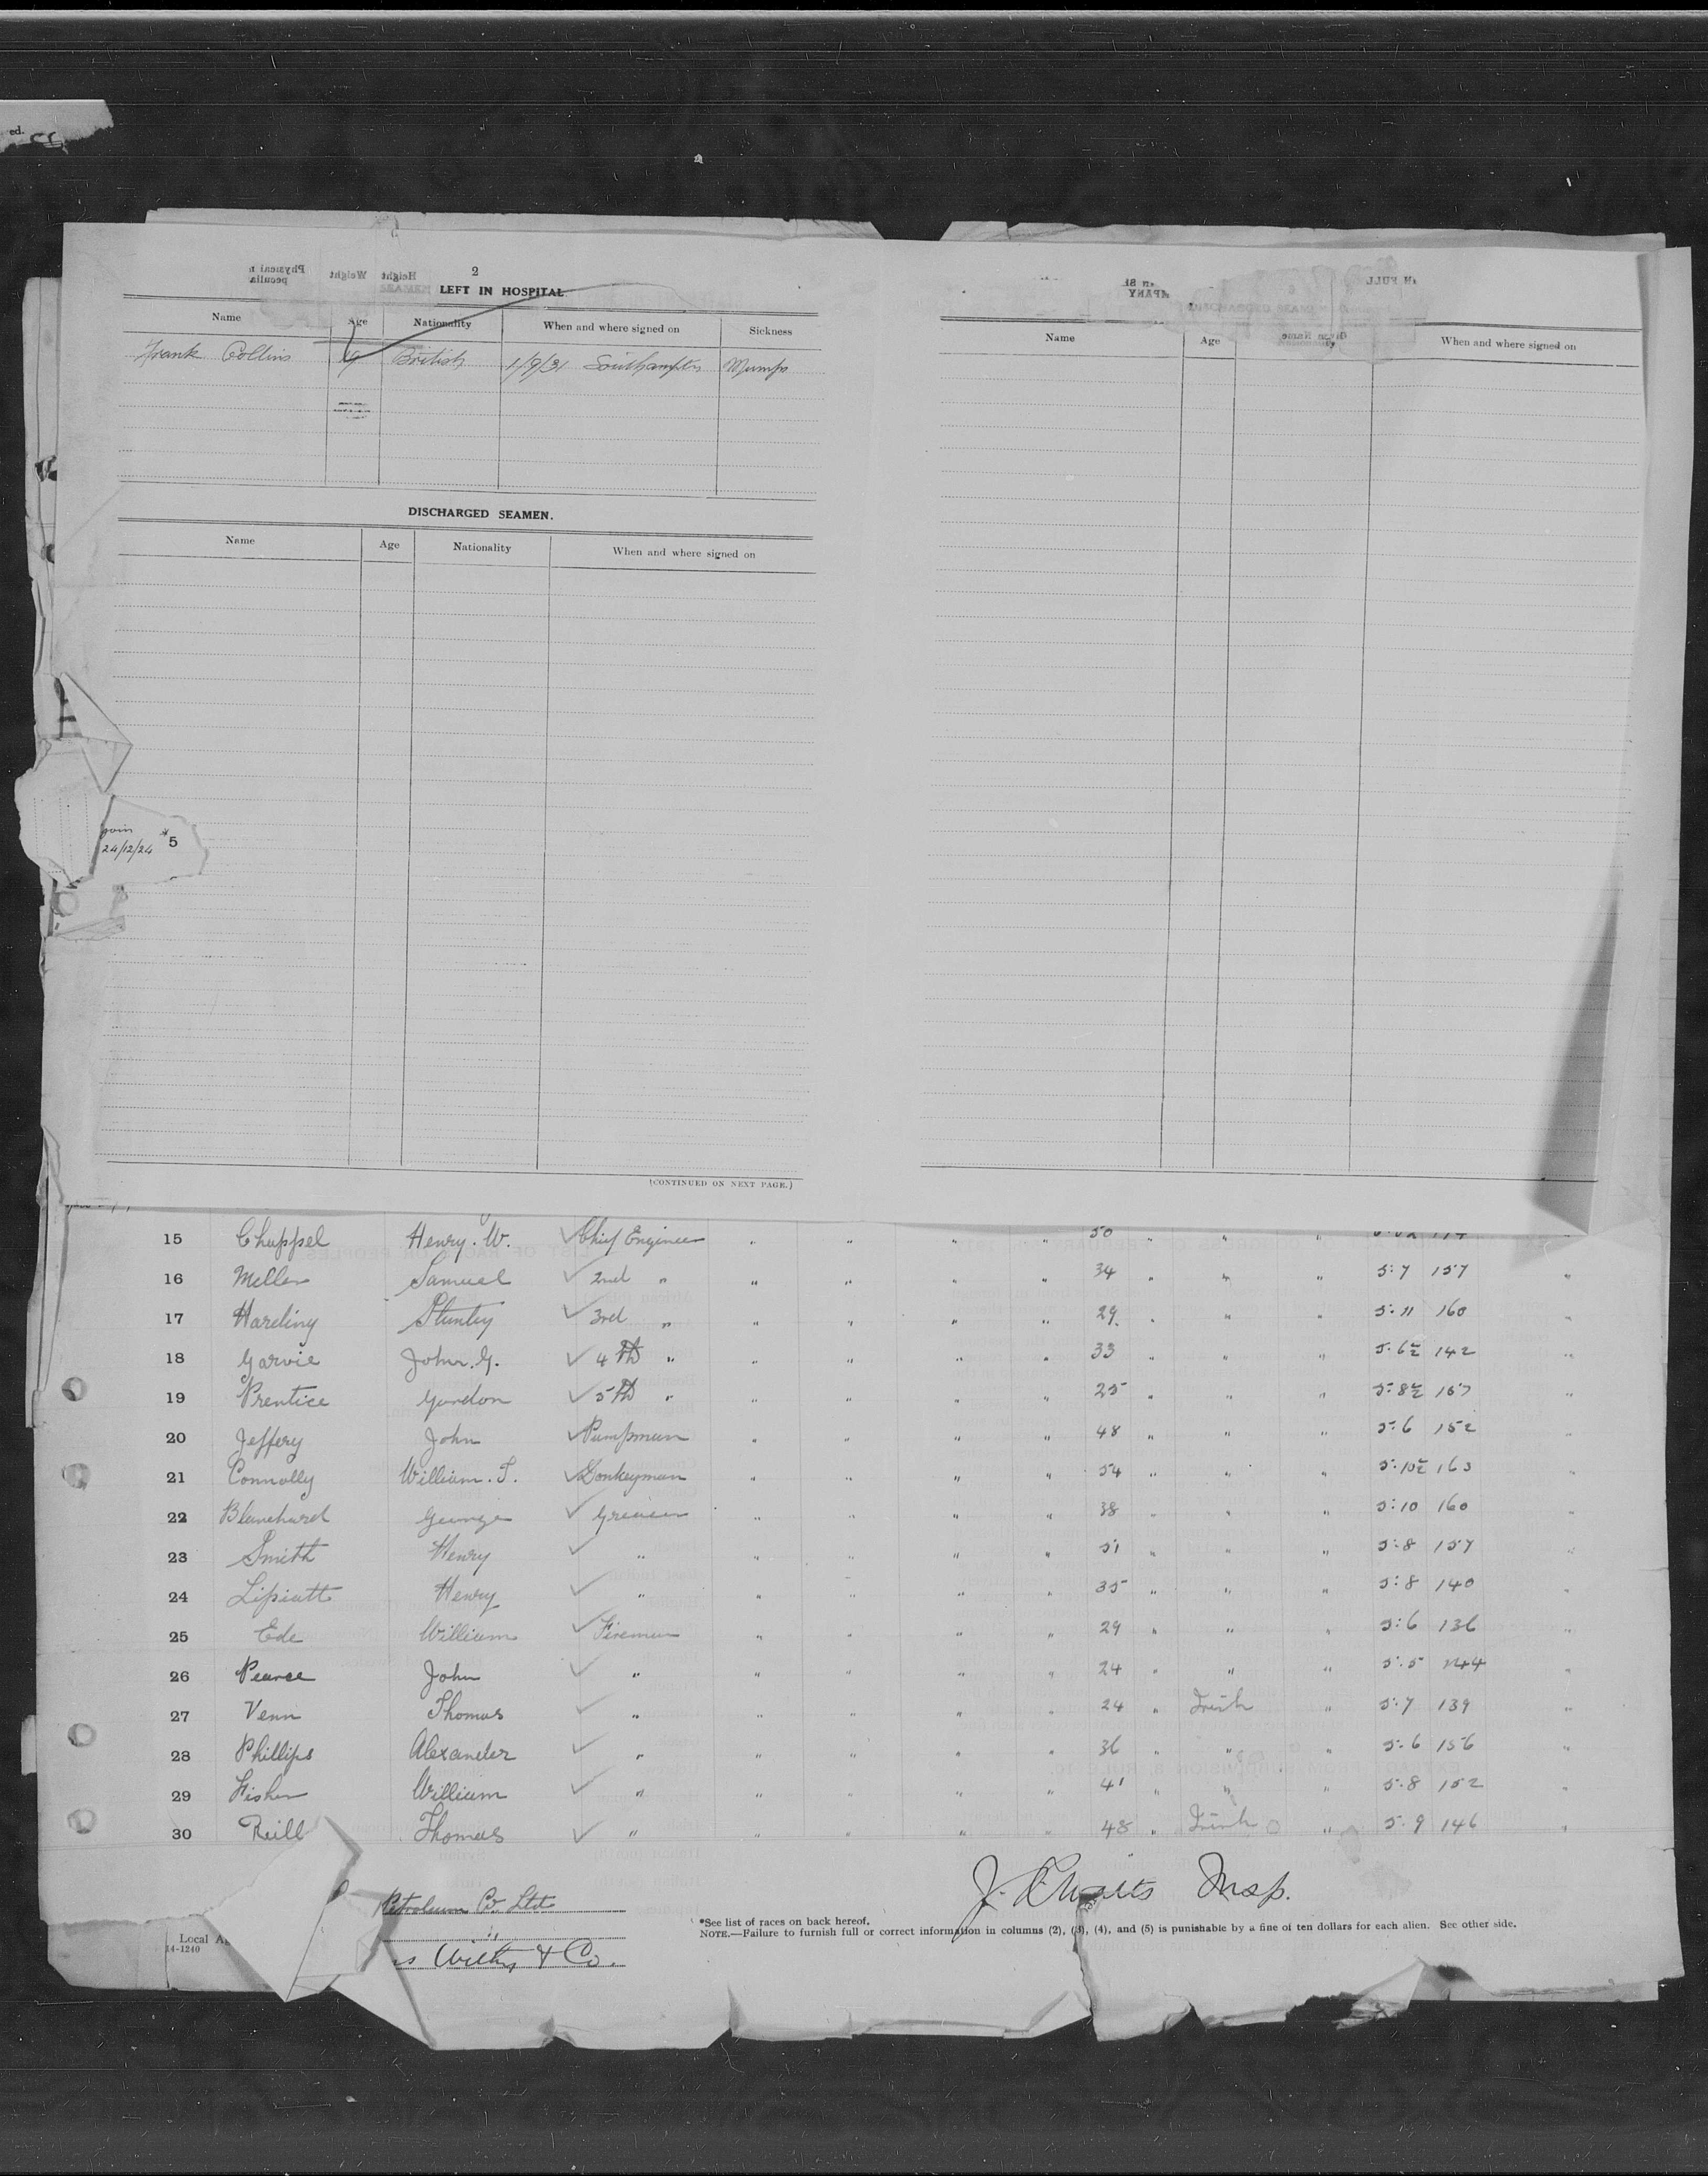 ed.
2
LEFT IN HOSPITAL
Name Age Nationality When and where signed on Sickness
Frank Collins 19 British 1/9/31 Southampton Mumps
DISCHARGED SEAMEN.
Name Age Nationality When and where signed on
(CONTINUED ON NEXT PAGE.)
Name Age When and where signed on
24/12/24 *5
15 Chappel Henry. W. Chief Engineer " " " " 50 " " "
16 Samuel 2nd " " " " " 34 " " " 5:7 157 "
17 Harding Stanley 3rd " " " " " 29 " " " 5:11 160 "
18 Garvie John. G. 4th " " " " " 33 " " " 5.6½ 142 "
19 Prentice Gordon 5th " " " " " 25 " " " 5:8½ "
20 Jeffery John Pumpman " " " " 48 " " " 5:6 152 "
21 Connolly William. T. Donkeyman " " " " 54 " " " 5:10½ 163 "
22 Blanchard George Greaser " " " " 38 " " " 5:10 160 "
23 Smith Henry " " " " " 51 " " " 5:8 157 "
24 Lipiatt Henry " " " " " 35 " " " 5:8 140 "
25 Ede William Fireman " " " " 29 " " " 5:6 136 "
26 Pearce John " " " " " 24 " " " 5:5 144 "
27 Venn Thomas " " " " " 24 " Irish " 5:7 139 "
28 Phillips Alexander " " " " " 36 " " " 5.6 156 "
29 Fisher William " " " " " 41 " " " 5.8 152 "
30 Reill Thomas " " " " " 48 " Irish " 5.9 146 "
Petroleum Co. Ltd
Insp.
Local
14-1240
& Co.
*See list of races on back hereof.
NOTE.—Failure to furnish full or correct information in columns (2), (3), (4), and (5) is punishable by a fine of ten dollars for each alien. See other side.